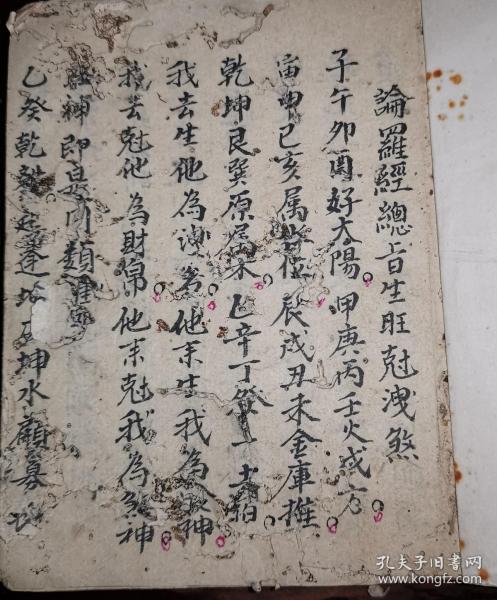 論羅經總旨生旺尅洩煞
子午卯酉好太陽甲庚丙壬火成方
寅申巳亥属 位辰戌丑未金庫推
乾坤艮巽原属木乙辛丁癸一土
我去生他為洩 他来生我為 神
我去尅他為財帛他来尅我為煞神
神即是同類
乙癸乾 逢 坤水顧墓
孔夫子旧书网
www.kongfz.com